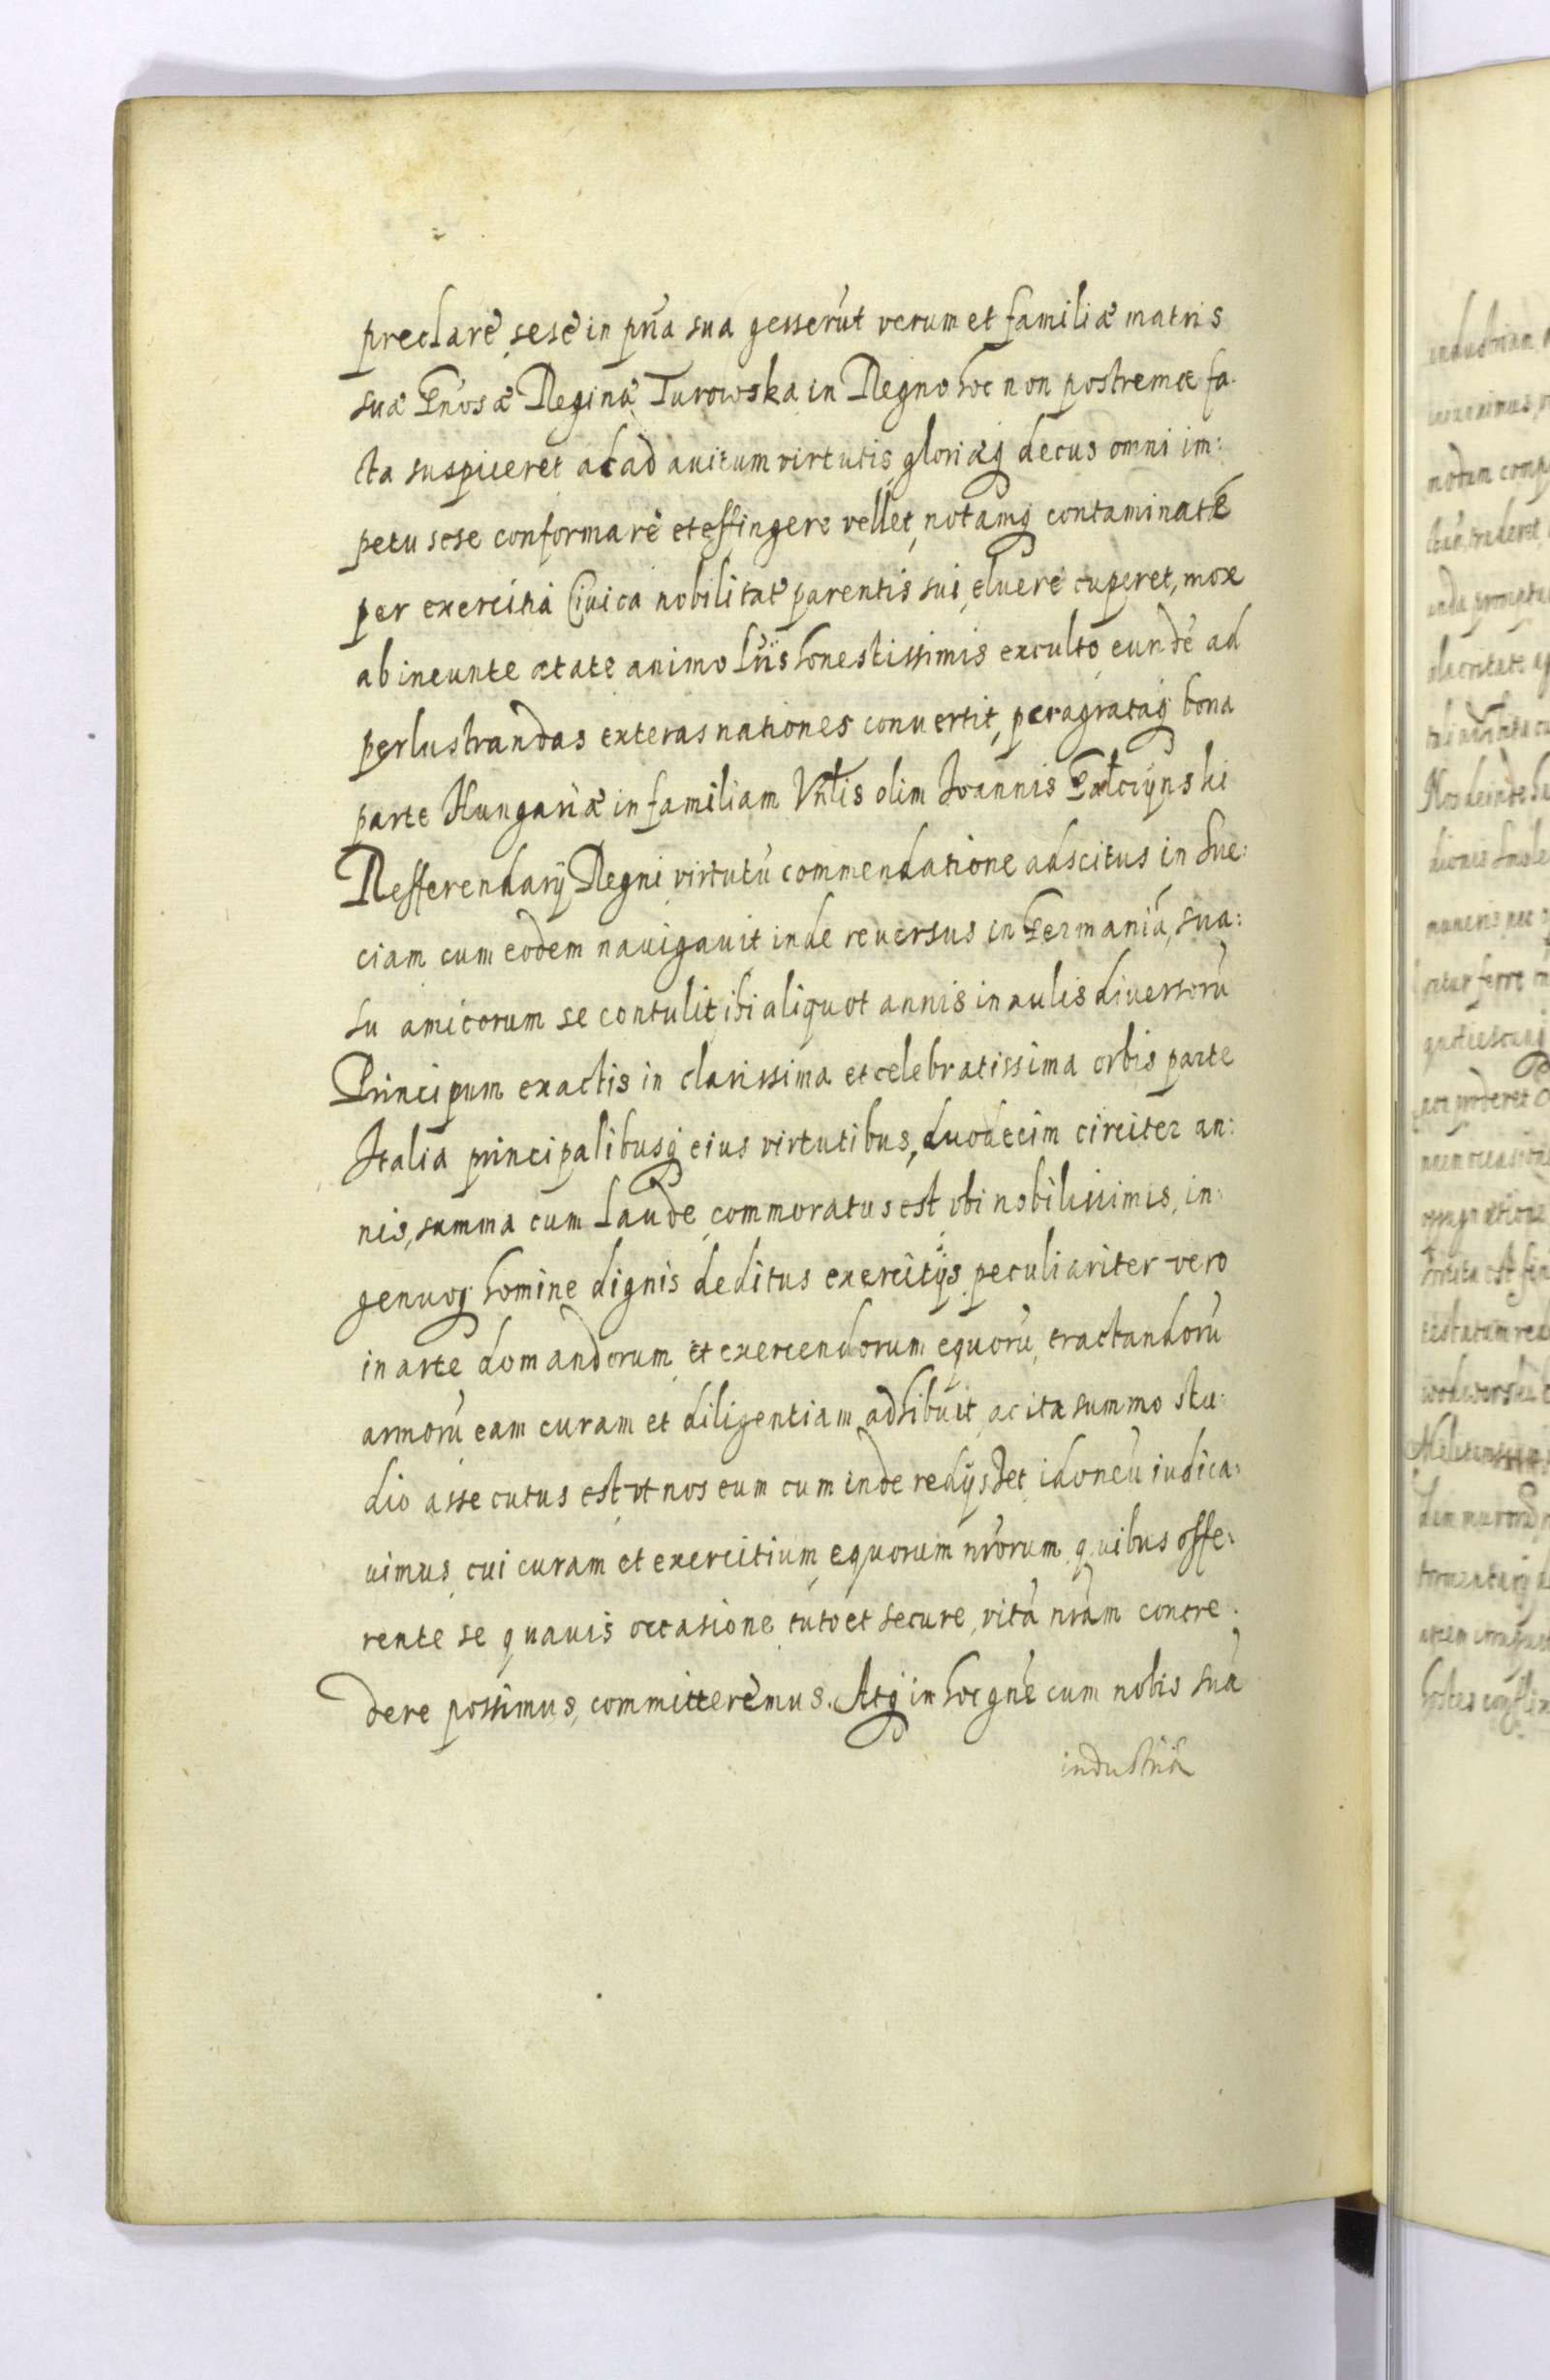 preclarè sese in pñia sua gesserût verum et familiæ matris
suæ Gñosæ Reginæ Turowska in Regno hoc non postremæ fa-
cta suspiceret ac ad auitum virtutis gloriæq decus omni im:
petu sese conformare et effingere vellet, notamq contaminatæ
per exercitia Ciuica nobilitatē parentis sui, eluere cuperet, mox
ab ineunte ætate animo lr̃is honestissimis exculto eundē ad
perlustrandas exteras nationes conuertit, peragrataq bona
parte Hungariæ in familiam Vrlis olim Ioannis Gałczynski
Refferendarij Regni virtutū commendatione adscitus in Sue:
ciam cum eodem nauigauit inde reuersus in Germaniā, sua:
su amicorum se contulit, ibi aliquot annis in aulis diuersorū
Principum exactis in clarissima et celebratissima orbis parte
Italia principalibusq eius virtutibus, duodecim circiter an:
nis, summa cum laude commoratus est vbi nobilissimis, in:
genuoq homine dignis deditus exercitijs, peculiariter vero
in arte domandorum et exercendorum equorū, tractandorū
armorū eam curam et diligentiam adhibuit, ac ita summo stu:
dio assecutus est, vt nos eum cum inde redijsset idoneū iudica:
uimus cui curam et exercitium equorum nrõrum quibus offe:
rente se quauis occasione tuto et secure, vitā nrãm concre:
dere possimus, committeremus. Atq in hoc gñe cum nobis suā
industriā